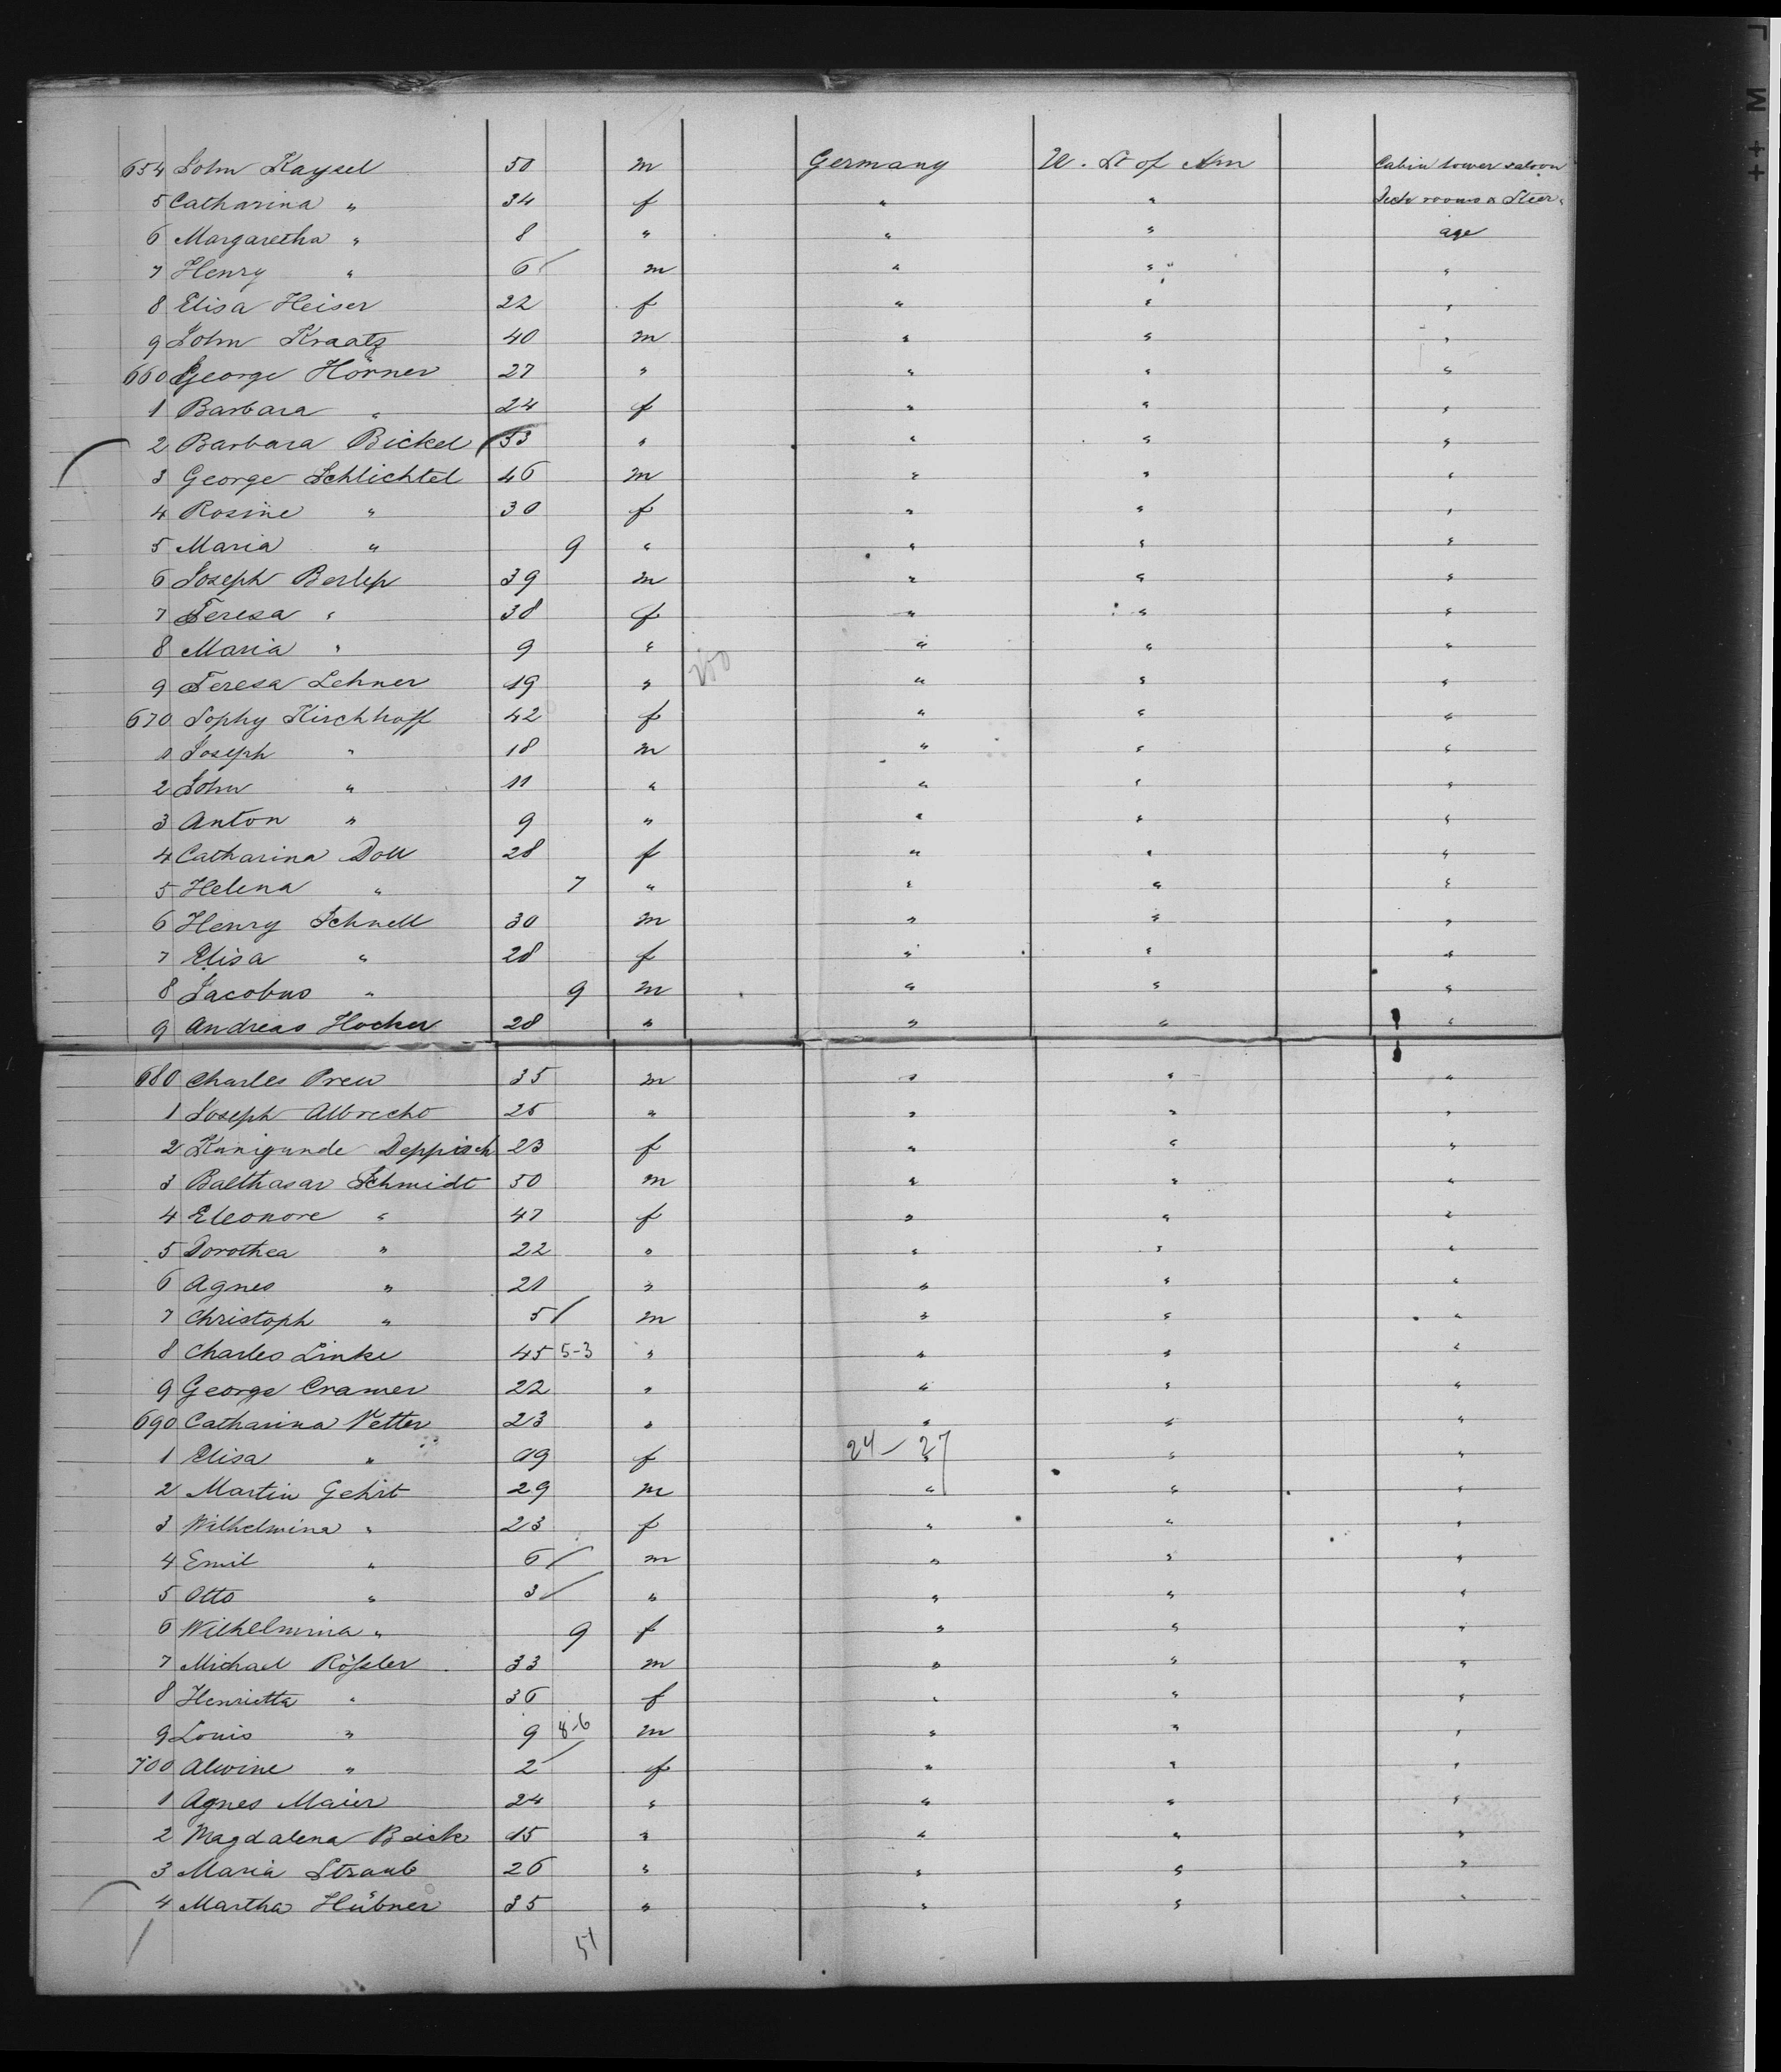 654 John Kaysel 50 m Germany U. St of Am Cabin lower saloon
5 Catharina " 34 f " " Deck rooms & Steer-
6 Margaretha " 8 " " " age
7 Henry " 6 m " " "
8 Elisa Heiser 22 f " " "
9 John Kraatz 40 m " " "
660 George Hörner 27 " " " "
1 Barbara " 24 f " " "
2 Barbara Bickel 53 " " " "
3 George Schlichtel 46 m " " "
4 Rosine " 30 f " " "
5 Maria " 9 " " " "
6 Joseph Berlep 39 m " " "
7 Teresa " 38 f " " "
8 Maria " 9 " " " "
9 Teresa Lehner 19 " " " "
670 Sophy Kirchhoff 42 f " " "
1 Joseph " 18 m " " "
2 John " 11 " " " "
3 Anton " 9 " " " "
4 Catharina Doll 28 f " " "
5 Helena " 7 " " " "
6 Henry Schnell 30 m " " "
7 Elisa " 28 f " " "
8 Jacobus " 9 m " " "
9 Andreas Hocker 28 " " " "
680 Charles Preu 35 m " " "
1 Joseph Albrecht 25 " " " "
2 Kunigunde Deppisch 23 f " " "
3 Balthasar Schmidt 50 m " " "
4 Eleonore " 47 f " " "
5 Dorothea " 22 " " " "
6 Agnes " 21 " " " "
7 Christoph " 5 m " " "
8 Charles Linke 45 5-3 " " " "
9 George Cramer 22 " " " "
690 Catharina Vetter 23 " " " "
24 - 27
1 Elisa " 19 f " " "
2 Martin Gehrt 29 m " " "
3 Wilhelmina " 23 f " " "
4 Emil " 6 m " " "
5 Otto " 3 " " " "
6 Wilhelmina " 9 f " " "
7 Michael Rößler 33 m " " "
8 Henrietta " 36 f " " "
9 Louis " 9 8-6 m " " "
700 Alwine " 2 f " " "
1 Agnes Maier 24 " " " "
2 Magdalena Beick 15 " " " "
3 Maria Straub 26 " " " "
4 Martha Hübner 35 " " " "
51